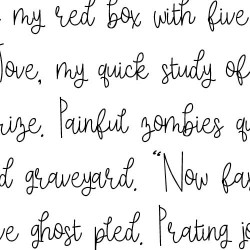 my red box with five
Jove, my quick study of
rize. Painful zombies qu
d graveyard. "Now fax
ve ghost pled. Prating is